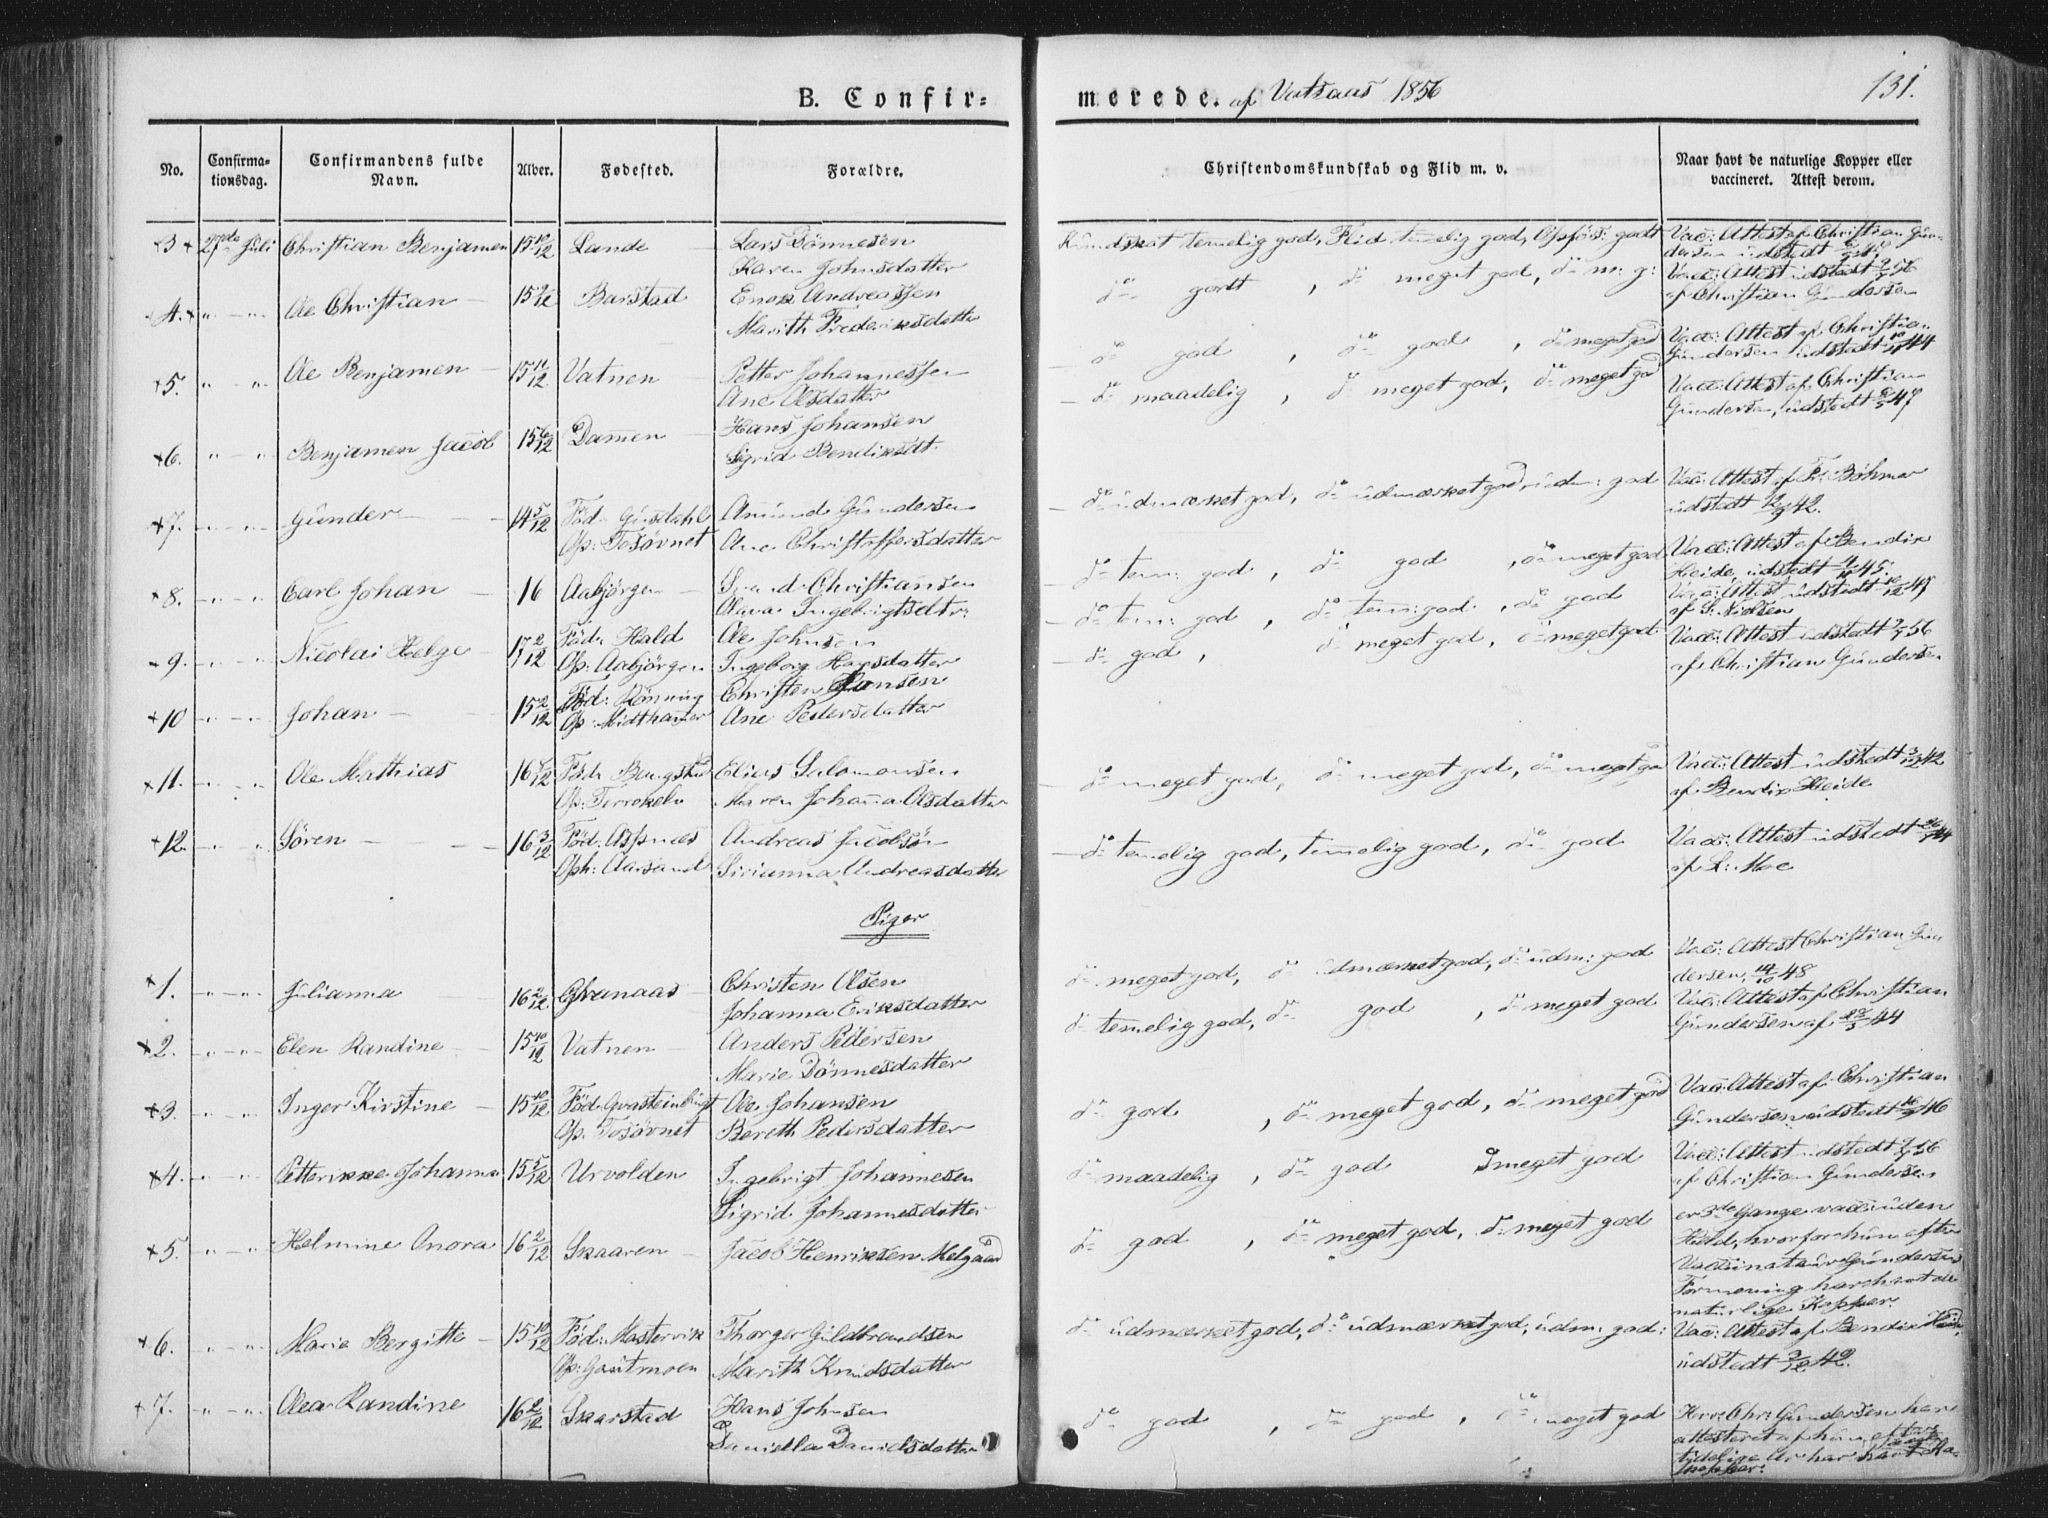 B. Confir-
merede. af Vatsaas 1856
131.
No.
Confirma-
tionsdag.
Confirmandens fulde
Navn.
Alder.
Fødested.
Forældre.
Christendomskundskab og Flid m. v.
Naar havt de naturlige Kopper eller
vaccineret. Attest derom.
3 27de Juli Christian Benjamen 15 10/12 Lande Lars Tönnesen
Karen Johnsdatter
Kundskab temelig god, Flid temelig god, godt
Vac: Attest af Christian Gun-
dersen udstedt
4. " — " Ole Christian — 15 Barstad Enok Andreassen
Marith Frederiksdatter
do godt, do meget god, do m: g:
Vac: Attest udstedt 56
af Christian Gundersen
5. " " Ole Benjamen — 15 11/12 Vatnen Petter Johannessen
Ane Olsdatter
do god, do god, do meget god
Vac: Attest af Christian
Gundersen udstedt 44
6. " — " Benjamen Jacob 15 Damen Hans Johansen
Sigrid Bendiksdt.
do maadelig, do meget god, do meget god
Vac: Attest af Christian
Gundersen, udstedt 47
7. " — " Gunder — 14 5/12 Föd: Gusdahl Amund Gundersen
Op: Tosövnet Ane Christoffersdatter
do udmærket god, do udmærket god, udm: god
Vac: Attest af Fr: Böhmer
udstedt 42.
8. " — " Carl Johan — 16 Aabjörgen — Svend Christiansen
Olava Ingebrigtsdtr:
do tem: god, do god, do meget god
Vac: Attest af Bendix
Heide, udstedt 45.
9. " — " Nicolai Helge — 17 2/12 Föd: Hald Ole Johnsen
Op: Aabjörgen Ingeborg Hansdatter
do tem: god, do tem: god, do god
Vac: Attest udstedt 47
af L: Nielsen
10 " — " Johan — 15 2/12 Föd: Rönning Christen Hansen
Op: Midthauger Ane Pedersdatter
do god, do meget god, do meget god
Vac: Attest udstedt 56
af Christian Gundersen
11. " — " Ole Mathias 16 Föd: Elias Salomonsen
Op: Terrakelv Maren Johanna Olsdatter
do meget god, do meget god, do meget god
Vac: Attest udstedt 42
af Bendix Heide
12. " — " Sören — 16 3/12 Föd: Aspnæs Andreas Jacobsön
Oph: Aarsand Sirianna Andreasdatter
do temelig god, temelig god, do god
Vac: Attest udstedt 44
af L: Moe
Piger
1. " — " Julianna 16 2/12 Granaas Christen Olsen
Johanna Eriksdatter
do meget god, do udmærket god, do udm: god
Vac: Attest Christian Gun
dersen, 14/10 48
2. " — " Elen Randine 15 10/12 Vatnen Anders Pedersen
Marie Tönnesdatter
do temelig god, do god, do meget god
Vac: Attest af Christian
Gundersen af 44
3. " — " Inger Kirstine 15 10/12 Föd: Ole Johansen
Op: Tosövnet Bereth Pedersdatter
do god, do meget god, do meget god
Vac: Attest af Christian
Gundersen udstedt 46
4. " — " Petterikke Johanna 15 5/12 Urvolden Ingebrigt Johannesen
Sigrid Johannesdatter
do maadelig, do god meget god
Vac: Attest udstedt 56
af Christian Gundersen
5. " — " Helmine Anora 16 2/12 Skaaren — Jacob Henriksen Melgaard
do god, do meget god, do meget god
er 3de Gange vac: uden
Held, hvorfor hun efter
Vaccinatør Gundersens
Formening har havt de
naturlige Kopper.
6. " — " Marie Bergitte — 15 10/12 Föd: Mastervik Thorger Guldbrandsen
Op: Gaustmoen Marith Knudsdatter
do udmærket god, do udmærket god, udm: god:
Vac: Attest af Bendix Heide,
udstedt 3/12 42.
7. " — " Olea Randine 16 2/12 Skarstad Hans Johnsen
Daniella Danielsdatter
do god, do god, do meget god
Herr: Chr: Gundersen have
attesteret af hun efter